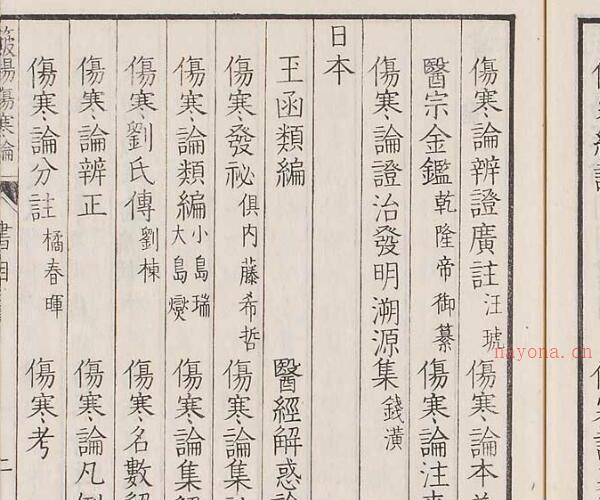 傷寒論辨證廣註 汪琥 傷寒論本
醫宗金鑑 乾隆帝御纂 傷寒論注
傷寒論證治發明溯源集 錢潢
日本
玉函類編 醫經解惑論
傷寒發祕 俱內藤希哲 傷寒論集
傷寒論類編 小島瑞 大島爕 傷寒論集
傷寒劉氏傳 劉棟 傷寒名數解
傷寒論辨正 傷寒論凡例
傷寒論分註 橘春暉 傷寒考
傷寒論
書目
二
nayona.cn